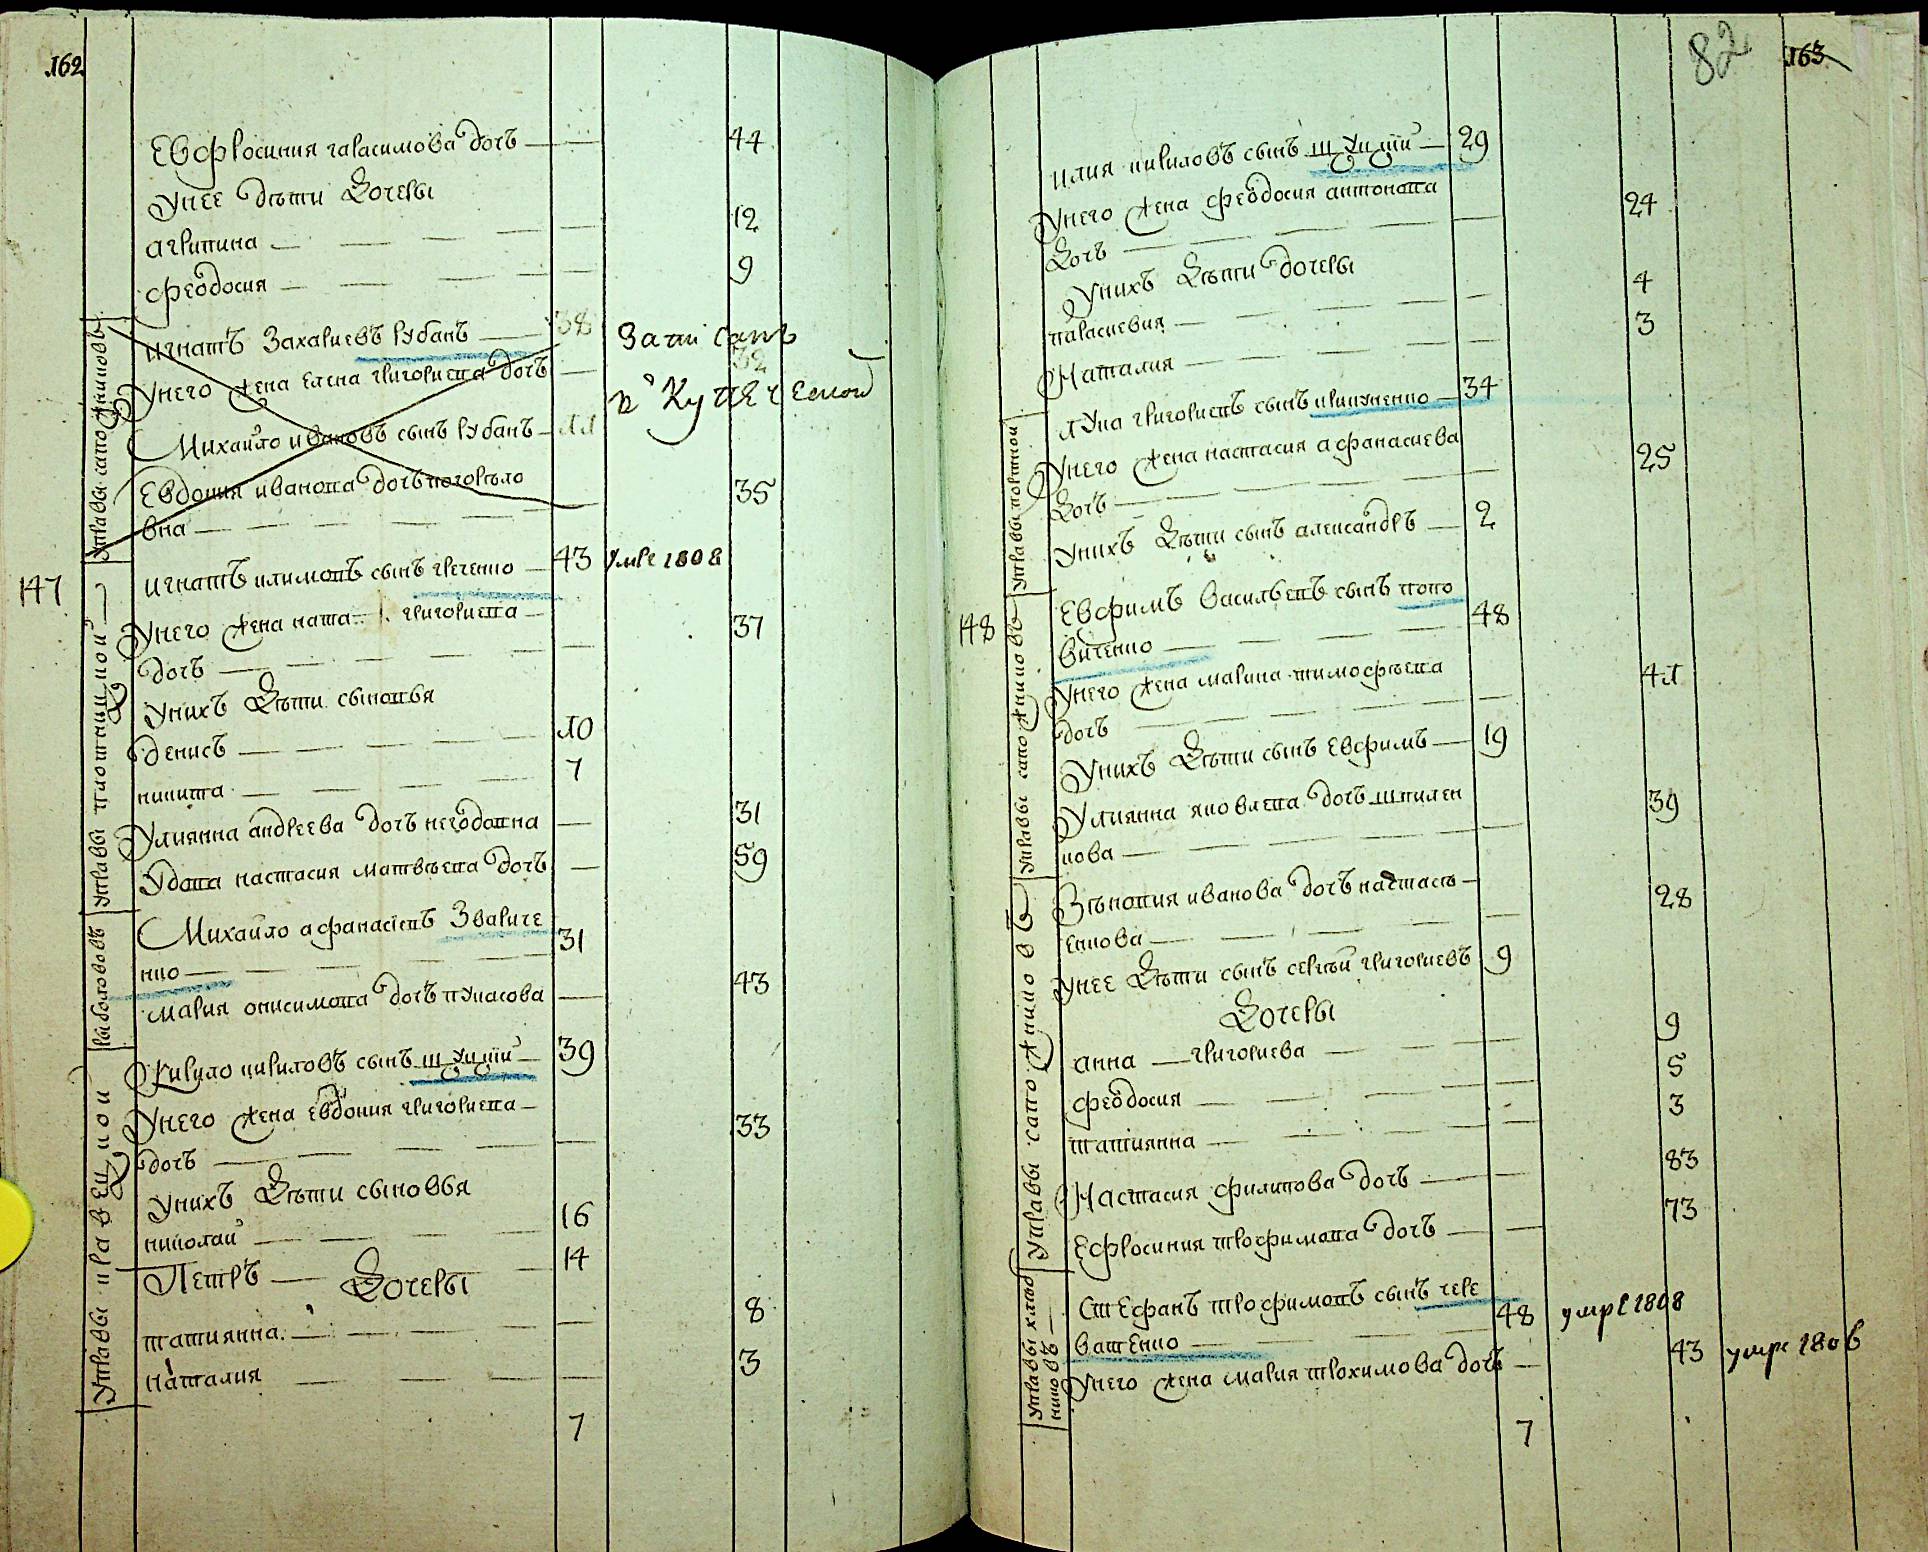 162
Евфросиния гарасимова дочъ 44
Унее дѣти дочеры
агрипина 12
феодосия 9
Управы сапожниковъ
игнатъ Захариевъ рубанъ 38 Записанъ
Унего жена Елена григориева дочъ 32
в Купеческой
Михайло ивановъ сынъ рубанъ 11
Евдокия иванова дочъ погорѣло
вна 35
147
Управы плотницкой
игнатъ климовъ сынъ гречелко 43 умре 1808
Унего жена ната григориева
дочъ 37
Унихъ дѣти сыновья
денисъ 10
никита 7
Улиянна андреева дочъ 31
Удова настасия матвѣева дочъ 59
рыболововъ
Михайло афанасиевъ Звариче
нко 31
мария онисимова дочъ пукасова 43
Управы кравецкой
Кирило кириловъ сынъ шкуцкий 39
Унего жена Евдокия григориева
дочъ 33
Унихъ дѣти сыновья
николай 16
Петръ 14
дочеры
татиянна 8
наталия 3
7
82 163
илия кириловъ сынъ шкуцкий 29
Унего жена феодосия антонова
дочъ 24
Унихъ дѣти дочеры
параскевия 4
Наталия 3
Управы портной
лука григориевъ сынъ крикуненко 34
Унего жена настасия афанасиева
дочъ 25
Унихъ дѣти сынъ александръ 2
148
Управы сапожниковъ
Евфимъ васильевъ сынъ попо
виченко 48
Унего жена марина тимофѣева
дочъ 41
Унихъ дѣти сынъ Евфимъ 19
Улиянна яковлева дочъ шкилен
кова 39
Управы сапожниковъ
Зѣновия иванова дочъ настась
енкова 28
Унее дѣти сынъ сергѣй григориевъ 9
дочеры
анна григориева 9
феодосия 5
татиянна 3
Настасия филипова дочъ 83
Ефросиния трофимова дочъ 73
Управы хлѣб
никовъ
Стефанъ трофимовъ сынъ чере
ватенко 48 умре 1808
Унего жена мария трохимова дочъ 43 умре 1806
7